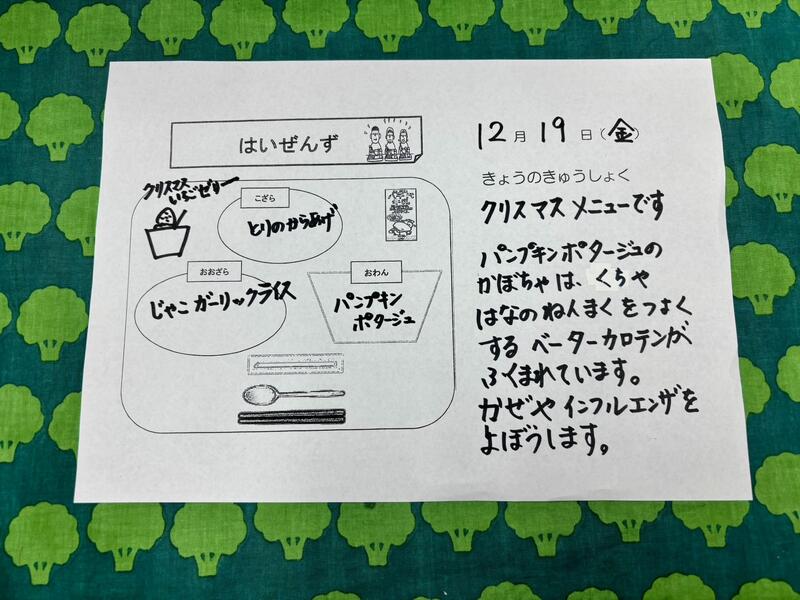 はいぜんず
クリスマス
いちごゼリー
こざら
とりのからあげ
おおざら
じゃこガーリックライス
おわん
パンプキン
ポタージュ
12月19日(金)
きょうのきゅうしょく
クリスマスメニューです
パンプキンポタージュの
かぼちゃは、くちや
はなのねんまくをつよく
するベーターカロテンが
ふくまれています。
かぜやインフルエンザを
よぼうします。